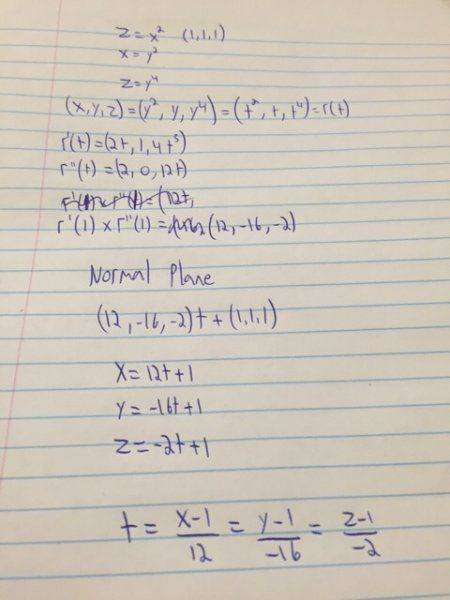 z = x² (1,1,1)
x = y²
z = y⁴
(x,y,z) = (y², y, y⁴) = (t², t, t⁴) = r(t)
r'(t) = (2t, 1, 4t³)
r''(t) = (2, 0, 12t)
r'(1) x r''(1) = (12, -16, -2)
Normal Plane
(12, -16, -2)t + (1,1,1)
x = 12t+1
y = -16t+1
z = -2t+1
t = x-1/12 = y-1/-16 = z-1/-2